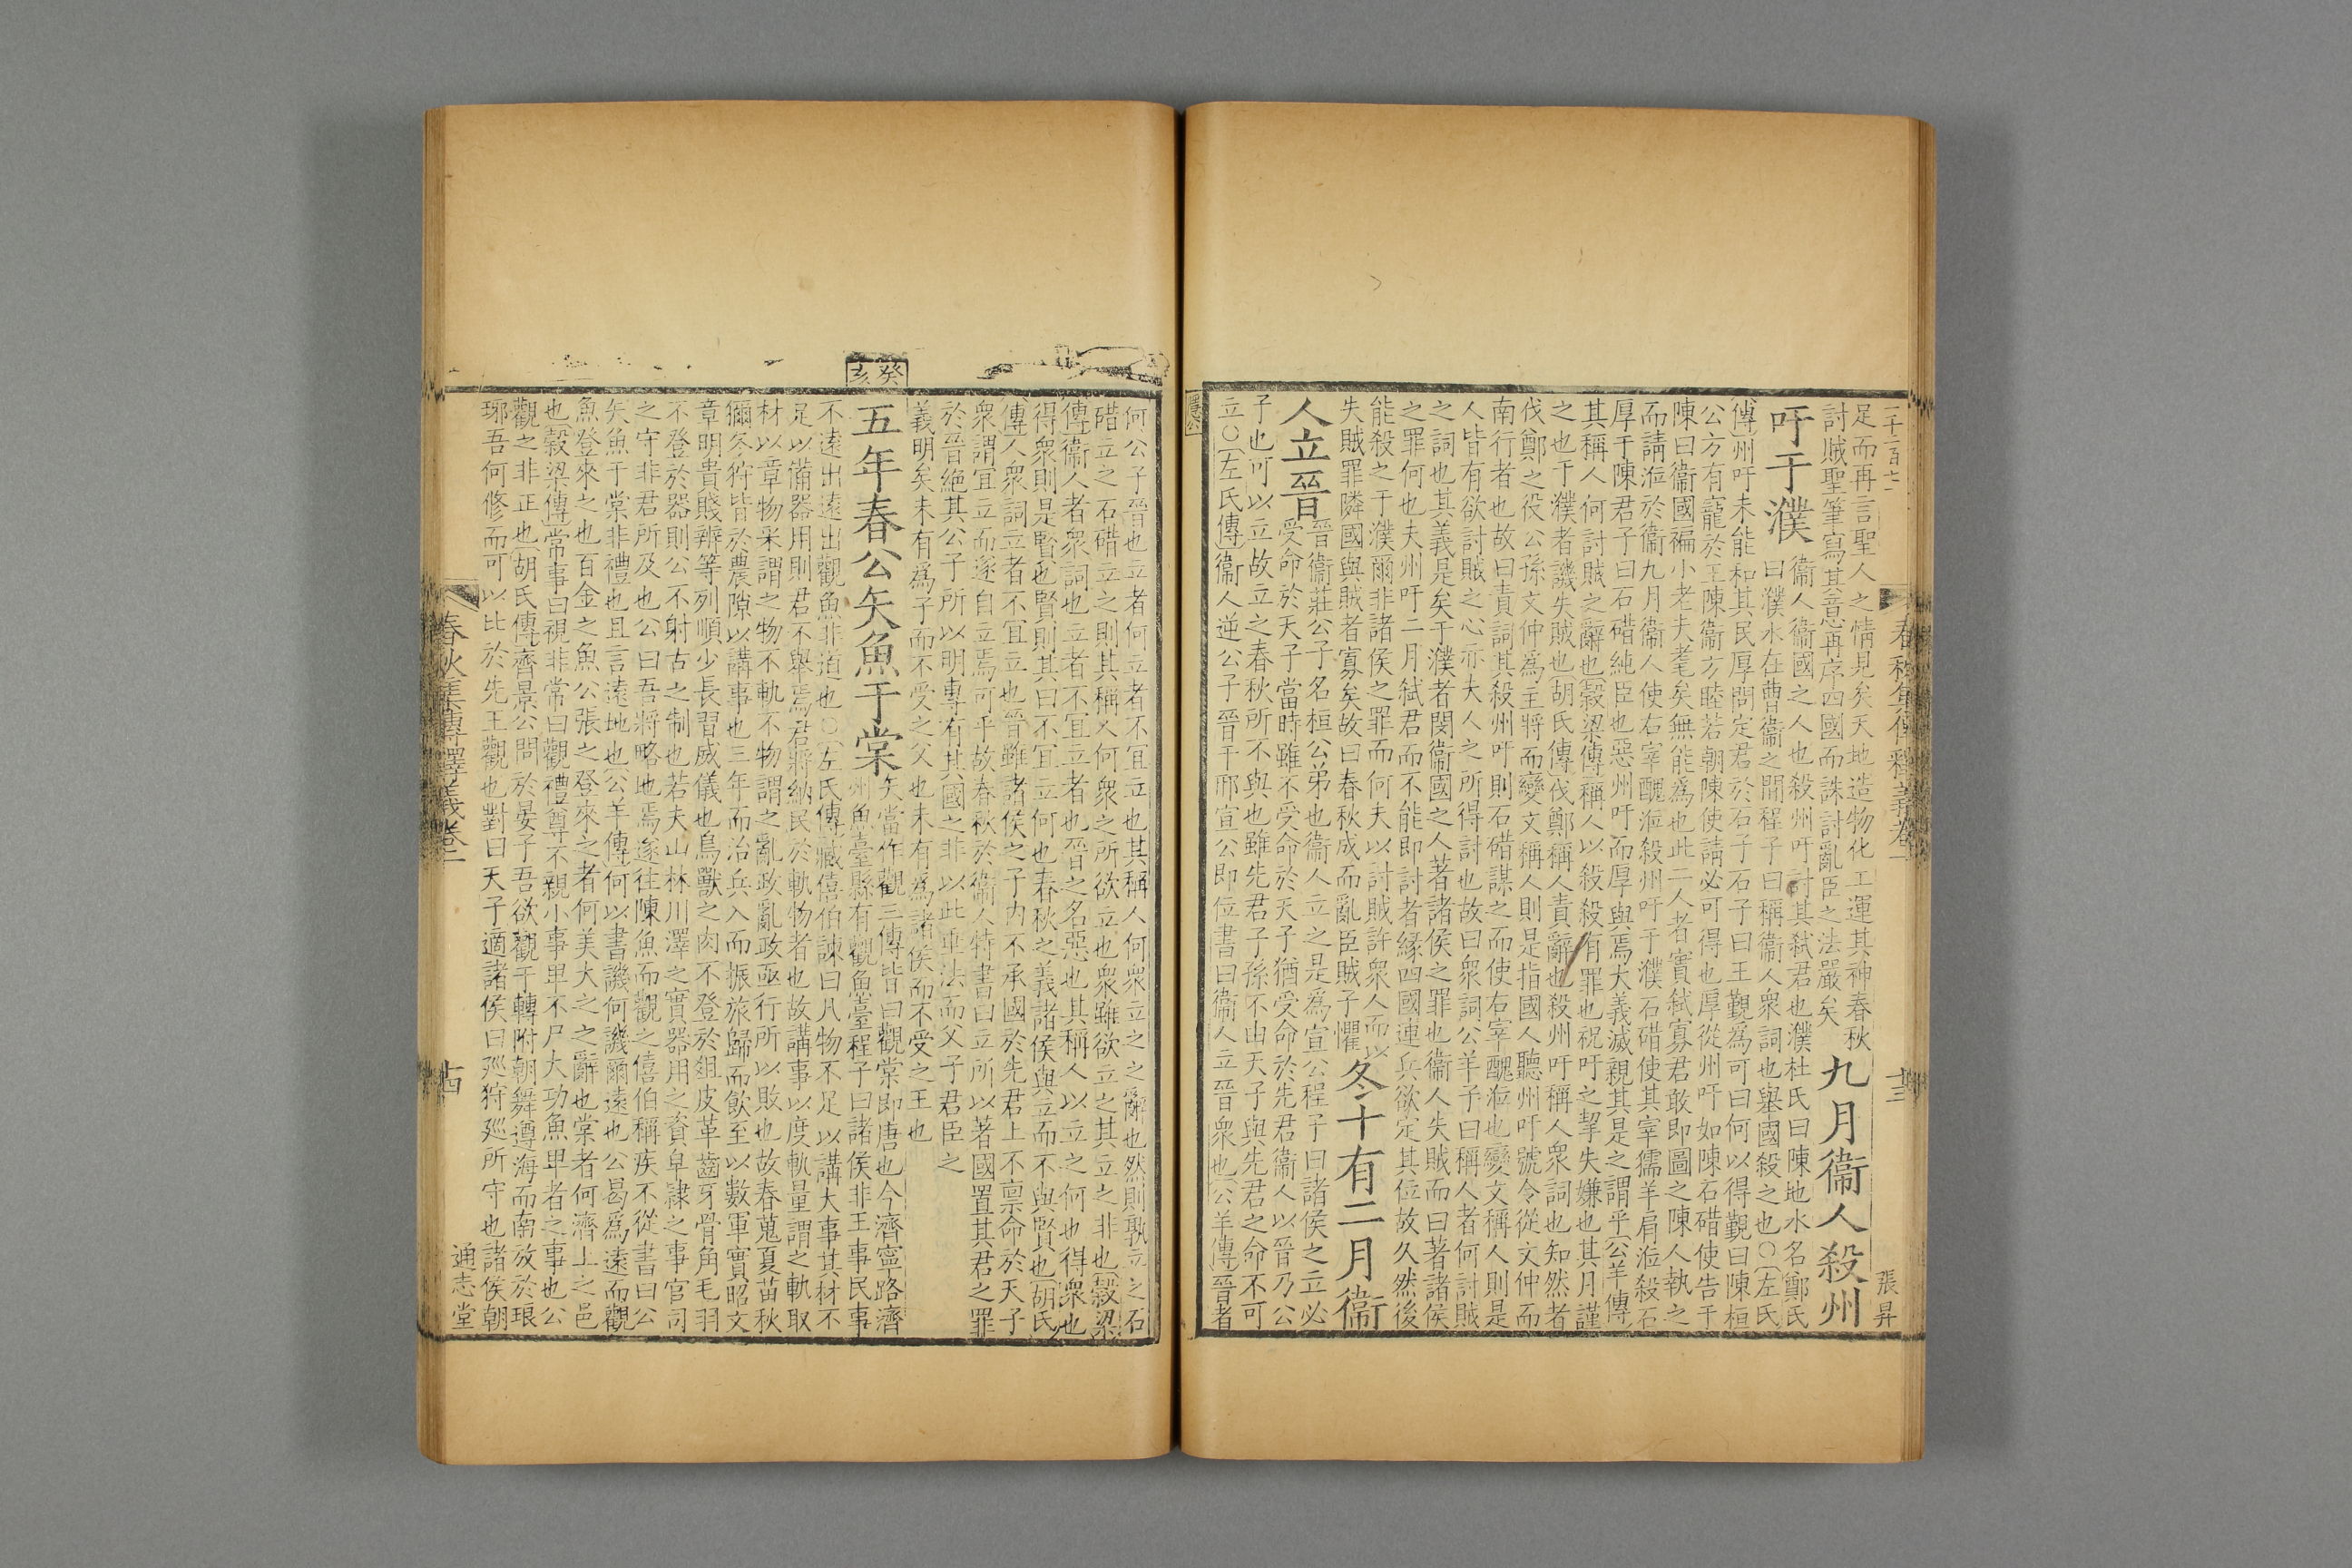 足而再言聖人之情見矣天地造物化工運其神春秋
討賊聖筆寫其意再序四國而誅討亂臣之法嚴矣
九月衞人殺州
吁于濮
衞人衞國之人也殺州吁討其弑君也濮杜氏曰陳地水名鄭氏
曰濮水在曹衞之間程子曰稱衞人衆詞也舉國殺之也○左氏
傳州吁未能和其民厚問定君於石子石子曰王覲爲可曰何以得覲曰陳桓
公方有寵於王陳衞方睦若朝陳使請必可得也厚從州吁如陳石碏使告于
陳曰衞國褊小老夫耄矣無能爲也此二人者實弑寡君敢即圖之陳人執之
而請涖於衞九月衞人使右宰醜涖殺州吁于濮石碏使其宰獳羊肩涖殺石
厚于陳君子曰石碏純臣也惡州吁而厚與焉大義滅親其是之謂乎公羊傳
其稱人何討賊之辭也穀梁傳稱人以殺殺有罪也祝吁之挈失嫌也其月謹
之也于濮者譏失賊也胡氏傳伐鄭稱人責辭也殺州吁稱人衆詞也知然者
伐鄭之役公孫文仲爲主將而變文稱人則是指國人聽州吁號令從文仲而
南行者也故曰責詞其殺州吁則石碏謀之而使右宰醜涖也變文稱人則是
人皆有欲討賊之心亦夫人之所得討也故曰衆詞公羊子曰稱人者何討賊
之詞也其義是矣于濮者閔衞國之人著諸侯之罪也衞人失賊而曰著諸侯
之罪何也夫州吁二月弑君而不能即討者緣四國連兵欲定其位故久然後
能殺之于濮爾非諸侯之罪而何夫以討賊許衆人而以
失賊罪隣國與賊者寡矣故曰春秋成而亂臣賊子懼
冬十有二月衞
人立晉
晉衞莊公子名桓公弟也衞人立之是爲宣公程子曰諸侯之立必
受命於天子當時雖不受命於天子猶受命於先君衞人以晉乃公
子也可以立故立之春秋所不與也雖先君子孫不由天子與先君之命不可
立○左氏傳衞人逆公子晉于邢宣公即位書曰衞人立晉衆也公羊傳晉者
隱公
二千二百七十
春秋集傳釋義卷一
十三
張昇
何公子晉也立者何立者不宜立也其稱人何衆立之之辭也然則孰立之石
碏立之石碏立之則其稱人何衆之所欲立也衆雖欲立之其立之非也穀梁
傳衞人者衆詞也立者不宜立者也晉之名惡也其稱人以立之何也得衆也
得衆則是賢也賢則其曰不宜立何也春秋之義諸侯與立而不與賢也胡氏
傳人衆詞立者不宜立也晉雖諸侯之子內不承國於先君上不稟命於天子
衆謂宜立而遂自立焉可乎故春秋於衞人特書曰立所以著國置其君之罪
於晉絶其公子所以明專有其國之非以此垂法而父子君臣之
義明矣未有爲子而不受之父也未有爲諸侯而不受之王也
癸亥
五年春公矢魚于棠
矢當作觀三傳皆曰觀棠即唐也今濟寧路濟
州魚臺縣有觀魚臺程子曰諸侯非王事民事
不遠出遠出觀魚非道也○左氏傳臧僖伯諫曰凡物不足以講大事其材不
足以備器用則君不舉焉君將納民於軌物者也故講事以度軌量謂之軌取
材以章物采謂之物不軌不物謂之亂政亂政亟行所以敗也故春蒐夏苗秋
獮冬狩皆於農隙以講事也三年而治兵入而振旅歸而飲至以數軍實昭文
章明貴賤辨等列順少長習威儀也鳥獸之肉不登於俎皮革齒牙骨角毛羽
不登於器則公不射古之制也若夫山林川澤之實器用之資皁隸之事官司
之守非君所及也公曰吾將略地焉遂往陳魚而觀之僖伯稱疾不從書曰公
矢魚于棠非禮也且言遠地也公羊傳何以書譏何譏爾遠也公曷爲遠而觀
魚登來之也百金之魚公張之登來之者何美大之之辭也棠者何濟上之邑
也穀梁傳常事曰視非常曰觀禮尊不親小事卑不尸大功魚卑者之事也公
觀之非正也胡氏傳齊景公問於晏子吾欲觀于轉附朝舞遵海而南放於琅
琊吾何修而可以比於先王觀也對曰天子適諸侯曰廵狩廵所守也諸侯朝
春秋集傳釋義卷一
十四
通志堂